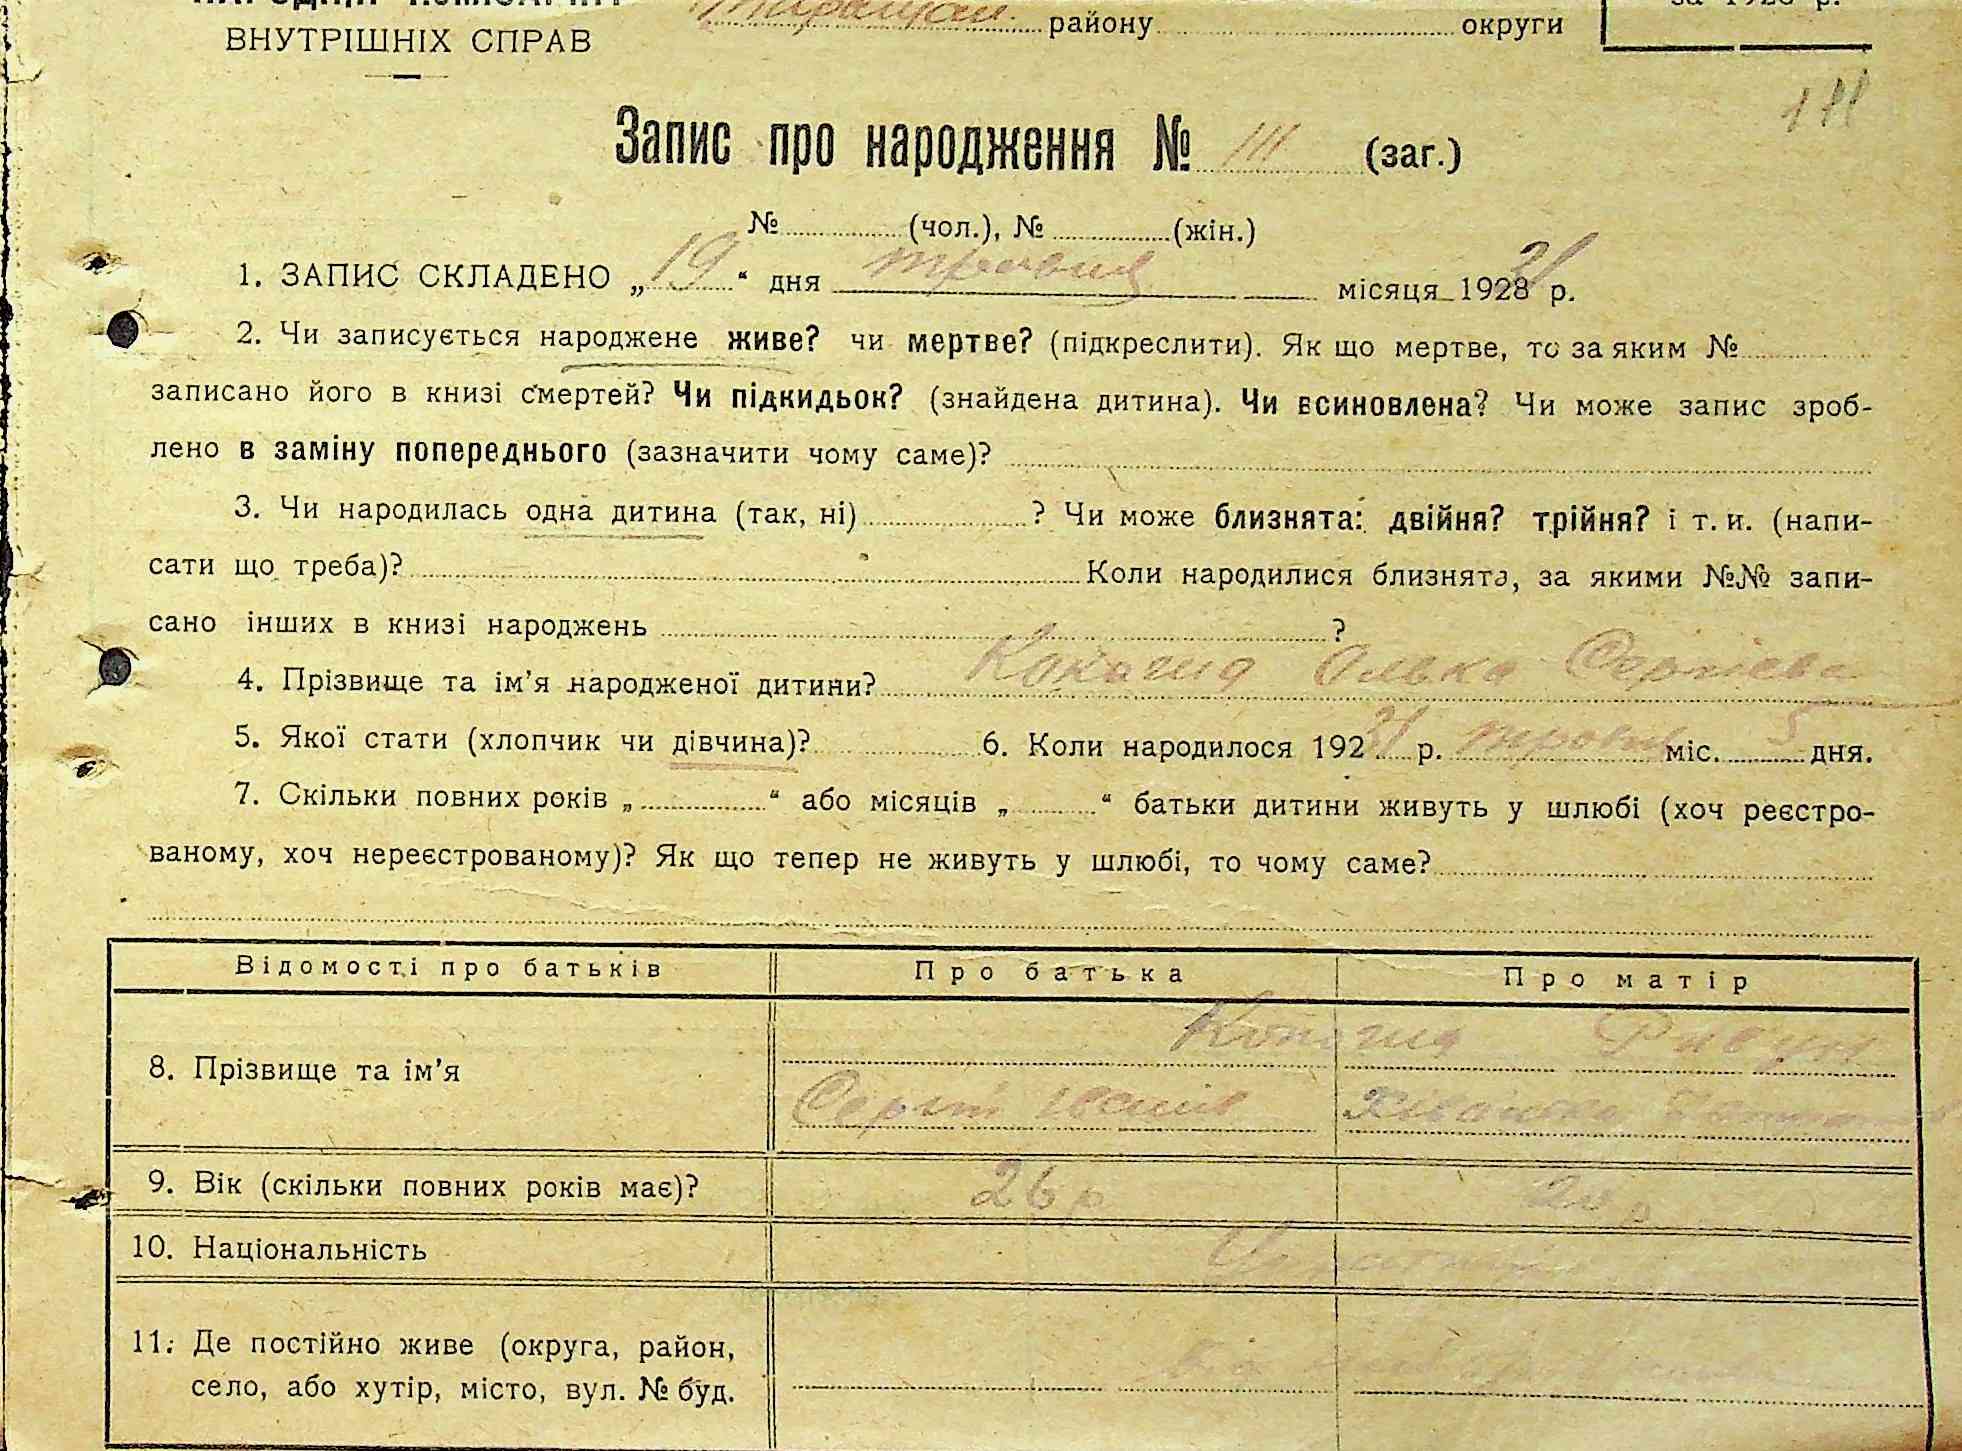 ВНУТРІШНІХ СПРАВ
району округи
за 1928 р.
Запис про народження № 111 (заг.)
111
№ (чол.), № (жін.)
1. ЗАПИС СКЛАДЕНО „19“ дня травня місяця 1928 р.
2. Чи записується народжене живе? чи мертве? (підкреслити). Як що мертве, то за яким №
записано його в книзі смертей? Чи підкидьок? (знайдена дитина). Чи всиновлена? Чи може запис зроб-
лено в заміну попереднього (зазначити чому саме)?
3. Чи народилась одна дитина (так, ні) ? Чи може близнята: двійня? трійня? і т. и. (напи-
сати що треба)? Коли народилися близнята, за якими №№ запи-
сано інших в книзі народжень ?
4. Прізвище та ім’я народженої дитини? Олька Сергієва
5. Якої стати (хлопчик чи дівчина)? 6. Коли народилося 192 р. травня міс. 5 дня.
7. Скільки повних років „ “ або місяців „ “ батьки дитини живуть у шлюбі (хоч реєстро-
ваному, хоч нереєстрованому)? Як що тепер не живуть у шлюбі, то чому саме?
Відомості про батьків Про батька Про матір
8. Прізвище та ім’я
Сергій
9. Вік (скільки повних років має)? 26 р 20 р
10. Національність
11. Де постійно живе (округа, район,
село, або хутір, місто, вул. № буд.